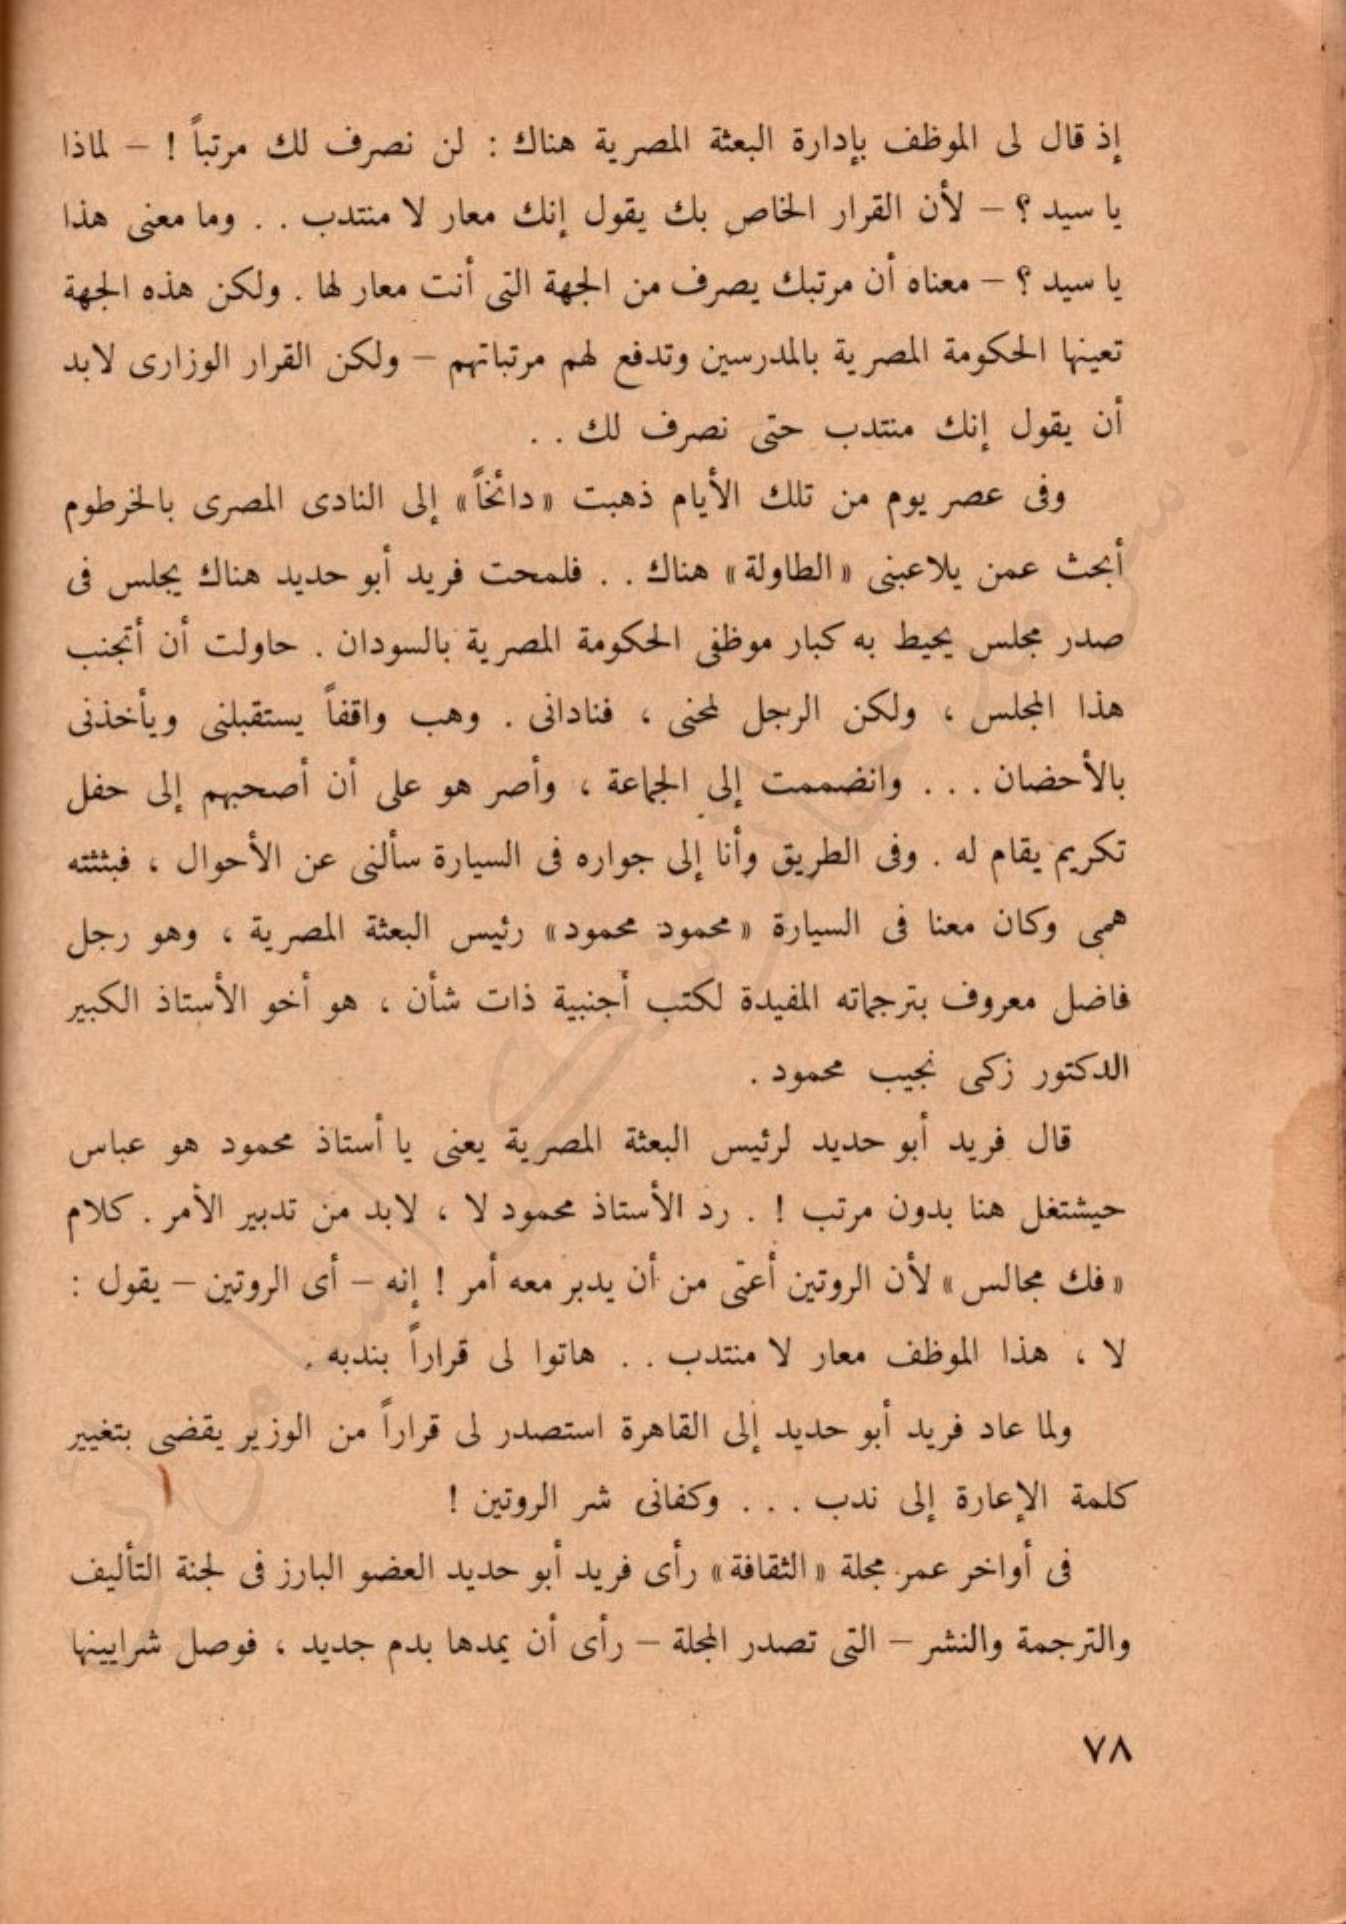 إذ قال لى الموظف بإدارة البعثة المصرية هناك : لن نصرف لك مرتباً ! – لماذا
يا سيد ؟ – لأن القرار الخاص بك يقول إنك معار لا منتدب . . وما معنى هذا
يا سيد ؟ – معناه أن مرتبك يصرف من الجهة التى أنت معار لها . ولكن هذه الجهة
تعينها الحكومة المصرية بالمدرسين وتدفع لهم مرتباتهم – ولكن القرار الوزارى لابد
أن يقول إنك منتدب حتى نصرف لك . .
وفى عصر يوم من تلك الأيام ذهبت « دائخاً » إلى النادى المصرى بالخرطوم
أبحث عمن يلاعبنى « الطاولة » هناك . . فلمحت فريد أبو حديد هناك يجلس فى
صدر مجلس يحيط به كبار موظفى الحكومة المصرية بالسودان . حاولت أن أتجنب
هذا المجلس ، ولكن الرجل لمحنى ، فنادانى . وهب واقفاً يستقبلنى ويأخذنى
بالأحضان . . . وانضممت إلى الجماعة ، وأصر هو على أن أصحبهم إلى حفل
تكريم يقام له . وفى الطريق وأنا إلى جواره فى السيارة سألنى عن الأحوال ، فبثثته
همى وكان معنا فى السيارة « محمود محمود » رئيس البعثة المصرية ، وهو رجل
فاضل معروف بترجماته المفيدة لكتب أجنبية ذات شأن ، هو أخو الأستاذ الكبير
الدكتور زكى نجيب محمود .
قال فريد أبو حديد لرئيس البعثة المصرية يعنى يا أستاذ محمود هو عباس
حيشتغل هنا بدون مرتب ! . رد الأستاذ محمود لا ، لابد من تدبير الأمر . كلام
« فك مجالس » لأن الروتين أعتى من أن يدبر معه أمر ! إنه – أى الروتين – يقول :
لا ، هذا الموظف معار لا منتدب . . هاتوا لى قراراً بندبه .
ولما عاد فريد أبو حديد إلى القاهرة استصدر لى قراراً من الوزير يقضى بتغيير
كلمة الإعارة إلى ندب . . . وكفانى شر الروتين !
فى أواخر عمر مجلة « الثقافة » رأى فريد أبو حديد العضو البارز فى لجنة التأليف
والترجمة والنشر – التى تصدر المجلة – رأى أن يمدها بدم جديد ، فوصل شرايينها
٧٨